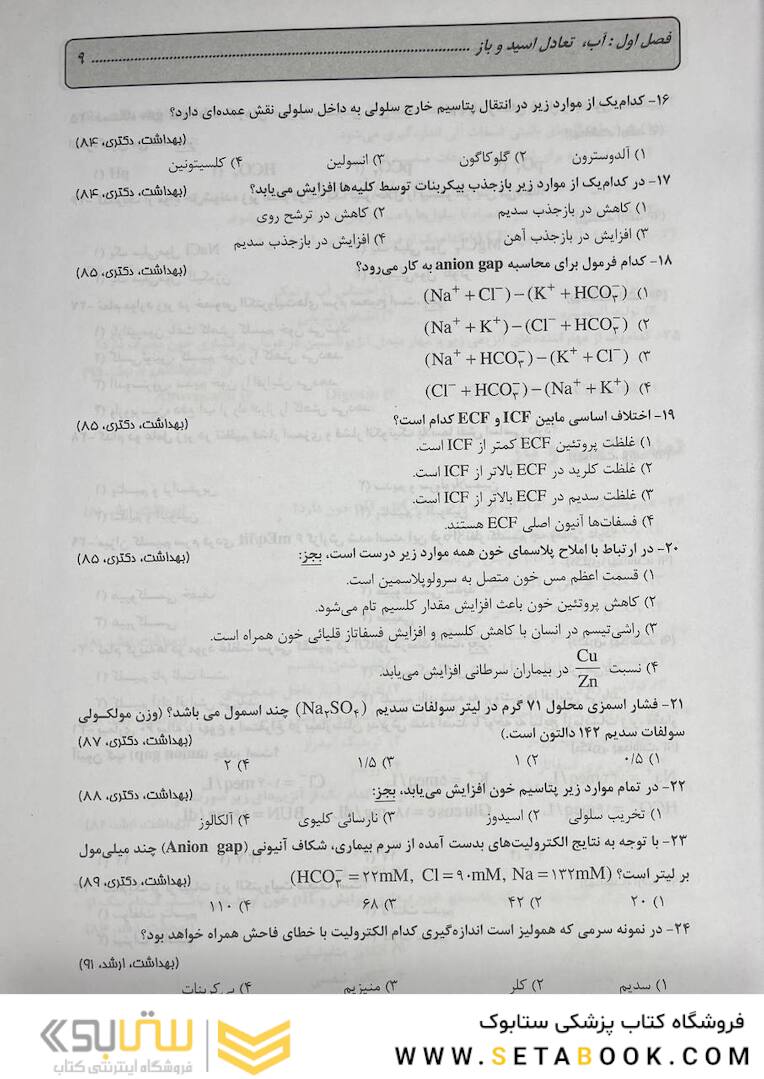 فصل اول: آب، تعادل اسید و باز ........................................ ۹
۱۶- کدام‌یک از موارد زیر در انتقال پتاسیم خارج سلولی به داخل سلولی نقش عمده‌ای دارد؟
(بهداشت، دکتری، ۸۴)
۱) آلدوسترون ۲) گلوکاگون ۳) انسولین ۴) کلسیتونین
۱۷- در کدام‌یک از موارد زیر بازجذب بیکربنات توسط کلیه‌ها افزایش می‌یابد؟ (بهداشت، دکتری، ۸۴)
۱) کاهش در بازجذب سدیم ۲) کاهش در ترشح روی
۳) افزایش در بازجذب آهن ۴) افزایش در بازجذب سدیم
۱۸- کدام فرمول برای محاسبه anion gap به کار می‌رود؟ (بهداشت، دکتری، ۸۵)
۱) (Na⁺ + Cl⁻) – (K⁺ + HCO₃⁻)
۲) (Na⁺ + K⁺) – (Cl⁻ + HCO₃⁻)
۳) (Na⁺ + HCO₃⁻) – (K⁺ + Cl⁻)
۴) (Cl⁻ + HCO₃⁻) – (Na⁺ + K⁺)
۱۹- اختلاف اساسی مابین ICF و ECF کدام است؟ (بهداشت، دکتری، ۸۵)
۱) غلظت پروتئین ECF کمتر از ICF است.
۲) غلظت کلرید در ECF بالاتر از ICF است.
۳) غلظت سدیم در ECF بالاتر از ICF است.
۴) فسفات‌ها آنیون اصلی ECF هستند.
۲۰- در ارتباط با املاح پلاسمای خون همه موارد زیر درست است، بجز: (بهداشت، دکتری، ۸۵)
۱) قسمت اعظم مس خون متصل به سرولوپلاسمین است.
۲) کاهش پروتئین خون باعث افزایش مقدار کلسیم تام می‌شود.
۳) راشی‌تیسم در انسان با کاهش کلسیم و افزایش فسفاتاز قلیائی خون همراه است.
۴) نسبت Cu/Zn در بیماران سرطانی افزایش می‌یابد.
۲۱- فشار اسمزی محلول ۷۱ گرم در لیتر سولفات سدیم (Na₂SO₄) چند اسمول می باشد؟ (وزن مولکولی
سولفات سدیم ۱۴۲ دالتون است.) (بهداشت، دکتری، ۸۷)
۱) ۰/۵ ۲) ۱ ۳) ۱/۵ ۴) ۲
۲۲- در تمام موارد زیر پتاسیم خون افزایش می‌یابد، بجز: (بهداشت، دکتری، ۸۸)
۱) تخریب سلولی ۲) اسیدوز ۳) نارسائی کلیوی ۴) آلکالوز
۲۳- با توجه به نتایج الکترولیت‌های بدست آمده از سرم بیماری، شکاف آنیونی (Anion gap) چند میلی‌مول
بر لیتر است؟ (HCO₃⁻ = ۲۲mM, Cl = ۹۰mM, Na = ۱۳۲mM) (بهداشت، دکتری، ۸۹)
۱) ۲۰ ۲) ۴۲ ۳) ۶۸ ۴) ۱۱۰
۲۴- در نمونه سرمی که همولیز است اندازه‌گیری کدام الکترولیت با خطای فاحش همراه خواهد بود؟
(بهداشت، ارشد، ۹۱)
۱) سدیم ۲) کلر ۳) منیزیم ۴) بی‌کربنات
فروشگاه کتاب پزشکی ستابوک
WWW.SETABOOK.COM
ستابوک
فروشگاه اینترنتی کتاب